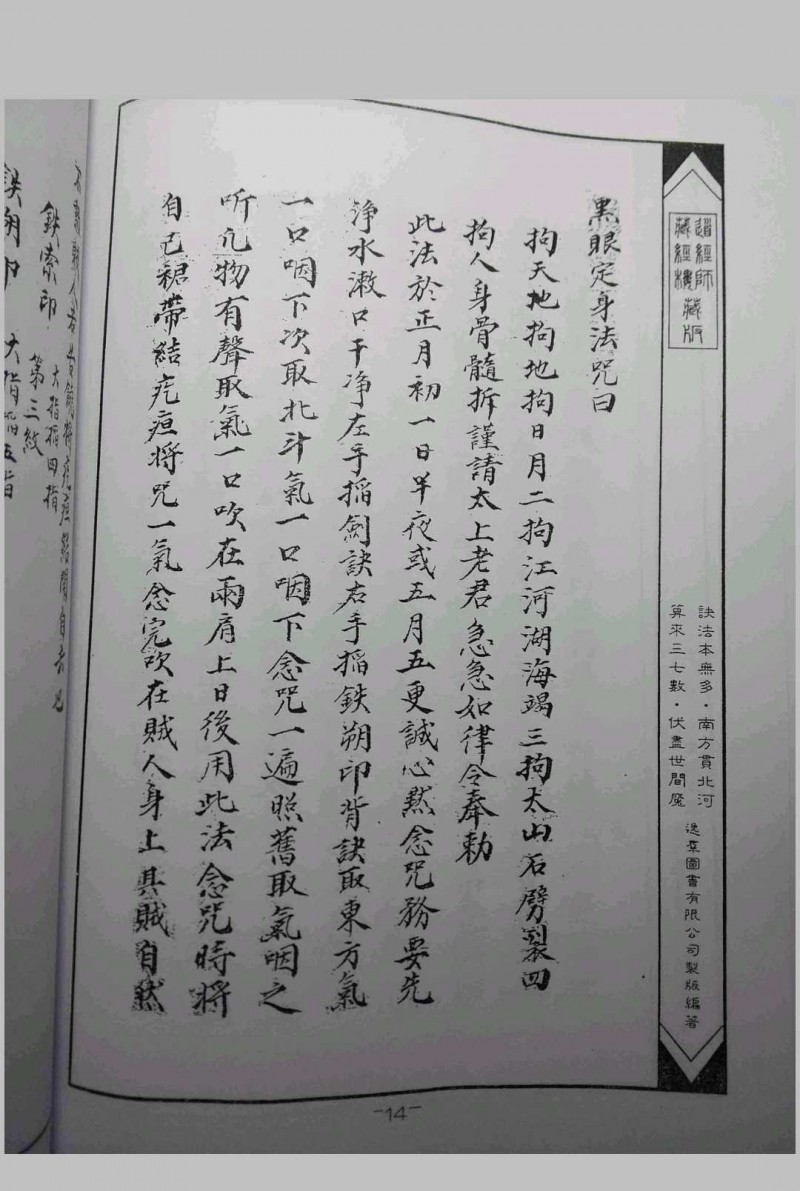 道經師
藏經樓藏版
訣法本無多·南方貫北河
算來三七數·伏盡世間魔
逸羣圖書有限公司製版編著
黑眼定身法咒曰
拘天地拘地拘日月二拘江河湖海竭三拘太山石劈裂四
拘人身骨髓拆謹請太上老君急急如律令奉勅
此法於正月初一日半夜或五月五更誠心黙念咒務要先
淨水漱口干净左手搯劍訣右手搯鉄朔印背訣取東方氣
一口咽下次取北斗氣一口咽下念咒一遍照舊取氣咽之
听凢物有聲取氣一口吹在兩肩上日後用此法念咒時將
自己裙帶結疙疸將咒一氣念完吹在賊人身上其賊自然
-14-
鉄索印 大指搯四指
第三紋
鉄朔印 大指搯五指